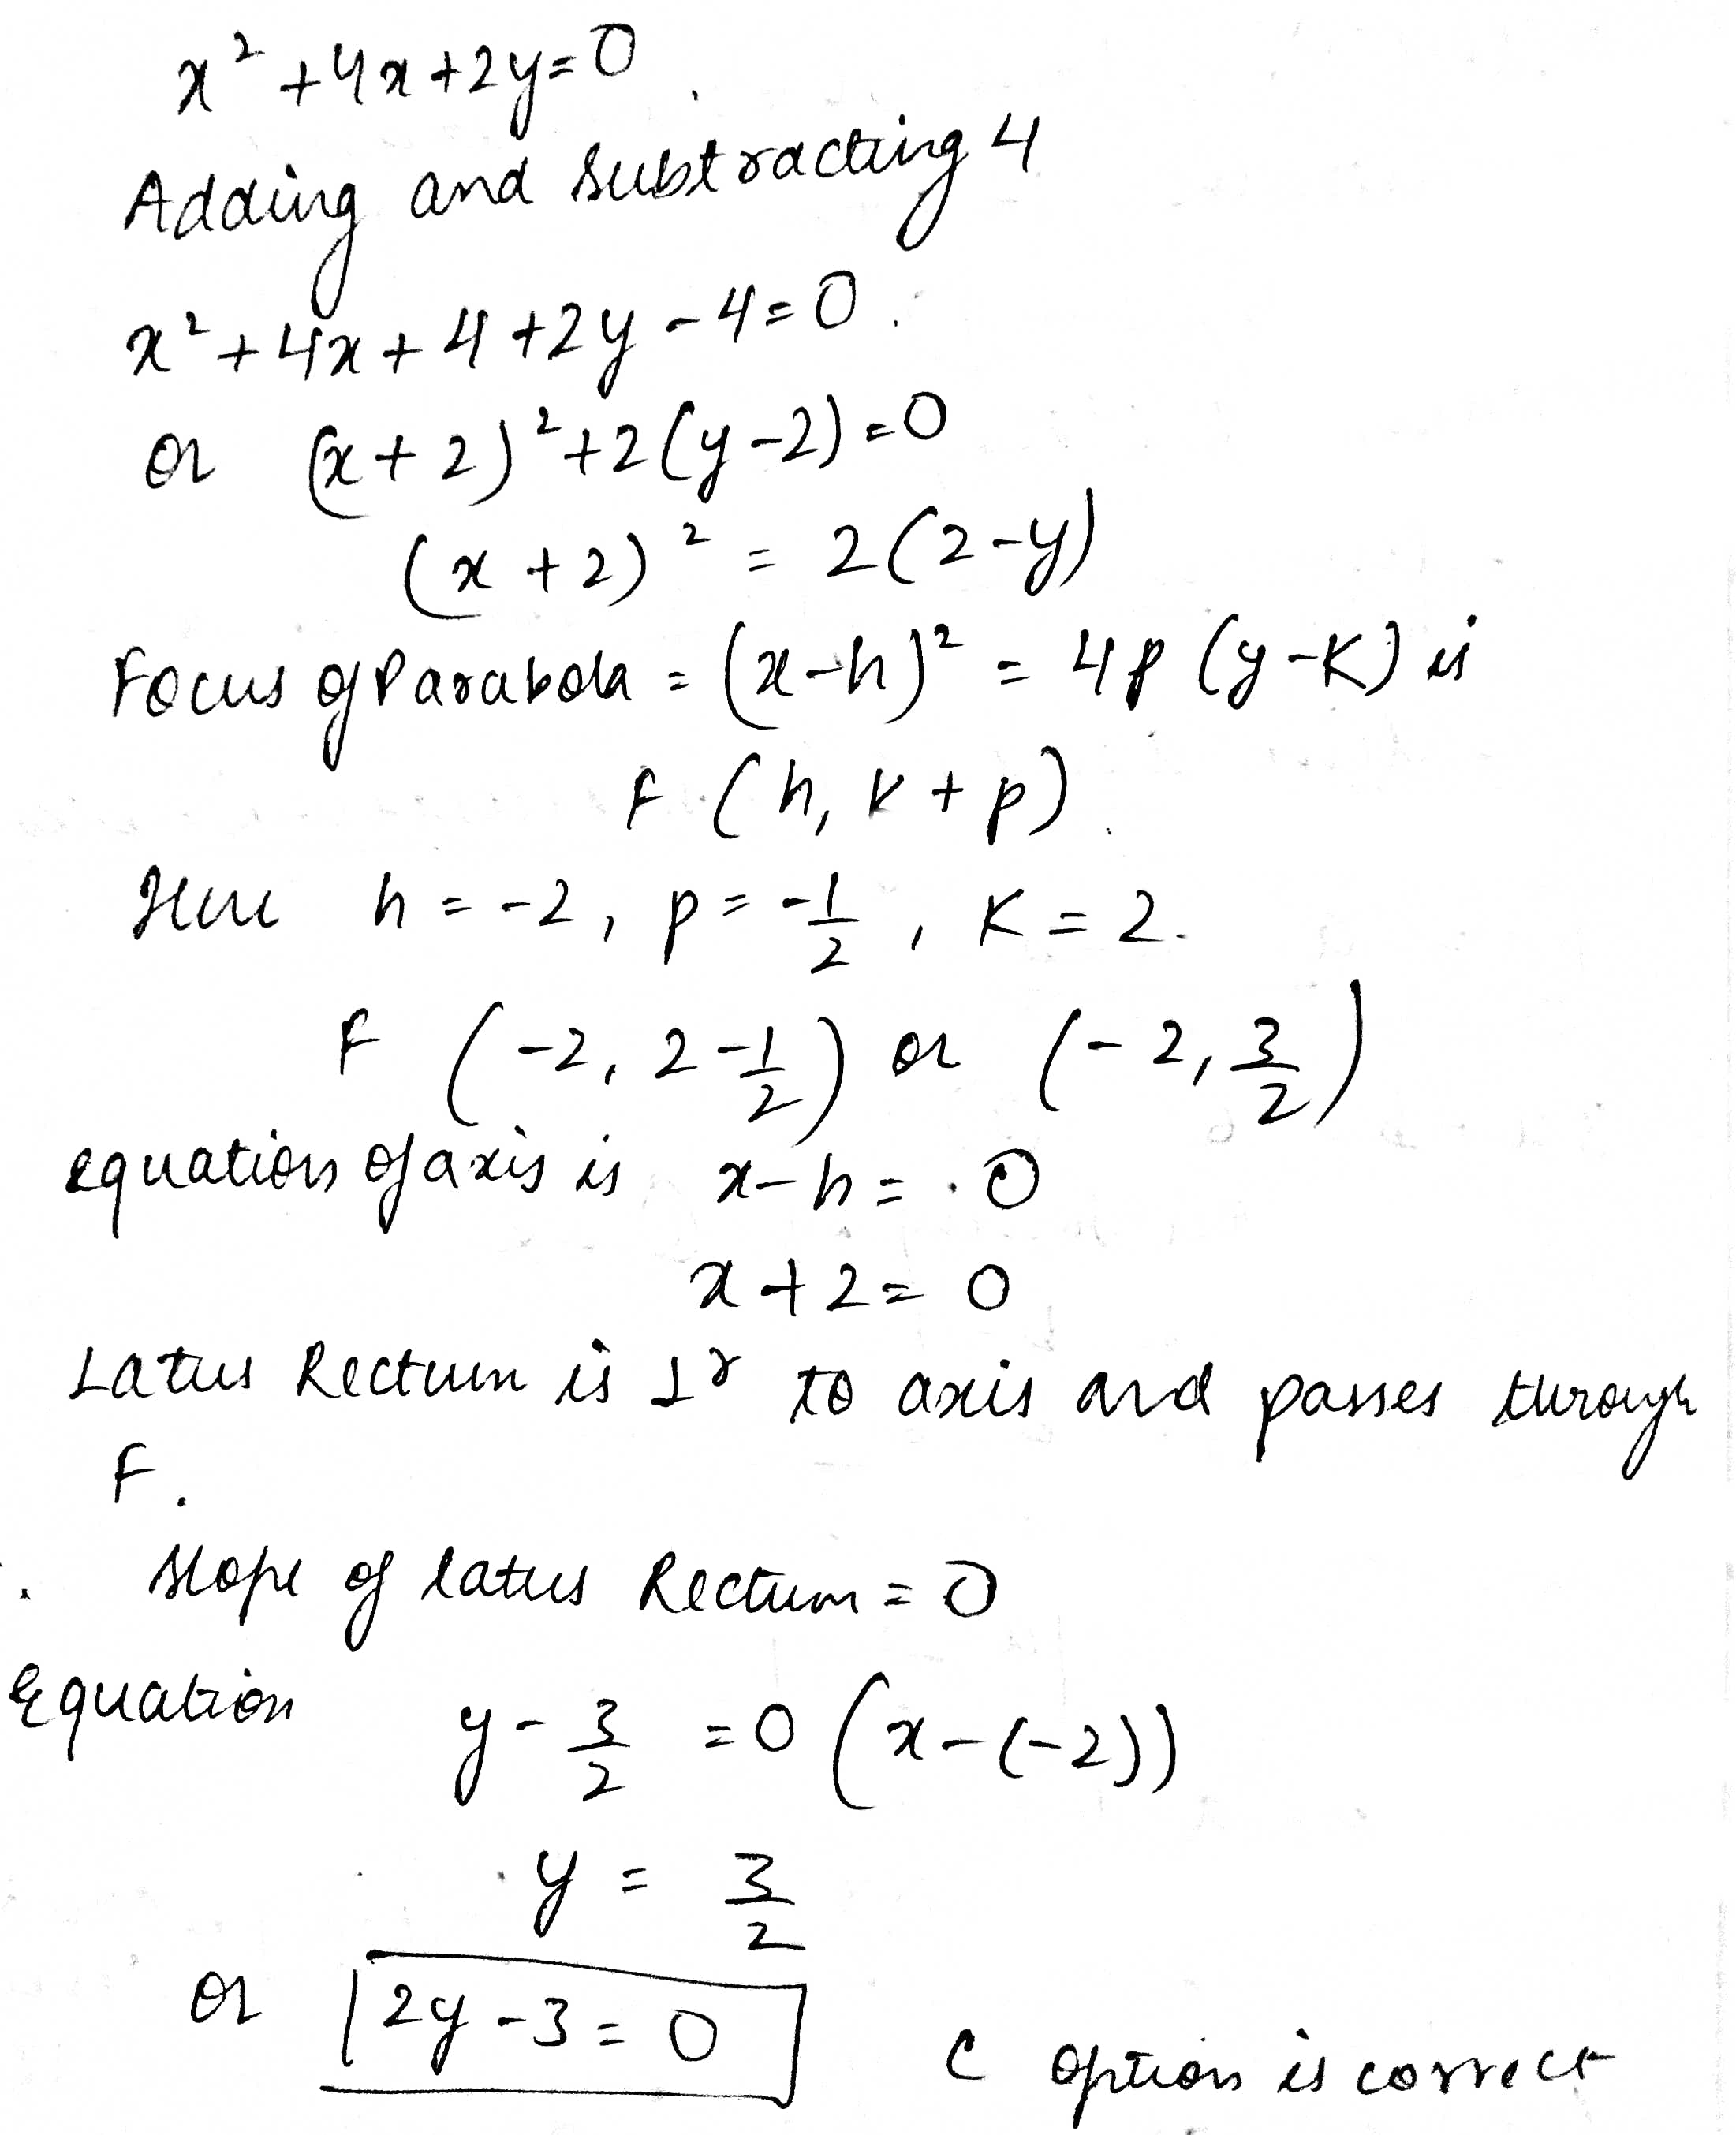 x² + 4x + 2y = 0
Adding and subtracting 4
x² + 4x + 4 + 2y - 4 = 0
or (x + 2)² + 2(y - 2) = 0
(x + 2)² = 2(2 - y)
Focus of Parabola = (x - h)² = 4p (y - K) is
F (h, K + p)
Here h = -2, p = -1/2, K = 2.
F (-2, 2 - 1/2) or (-2, 3/2)
equation of axis is x - h = 0
x + 2 = 0
Latus Rectum is ⊥r to axis and passes through
F.
slope of latus Rectum = 0
Equation y - 3/2 = 0 (x - (-2))
y = 3/2
or 2y - 3 = 0 C option is correct